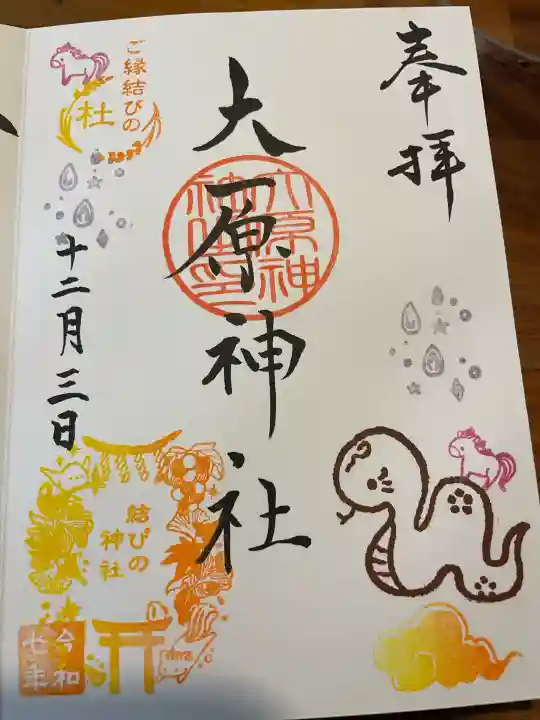 奉拝
大原神社
大原神社印
ご縁結びの
杜
十二月三日
結びの
神社
令和
七年